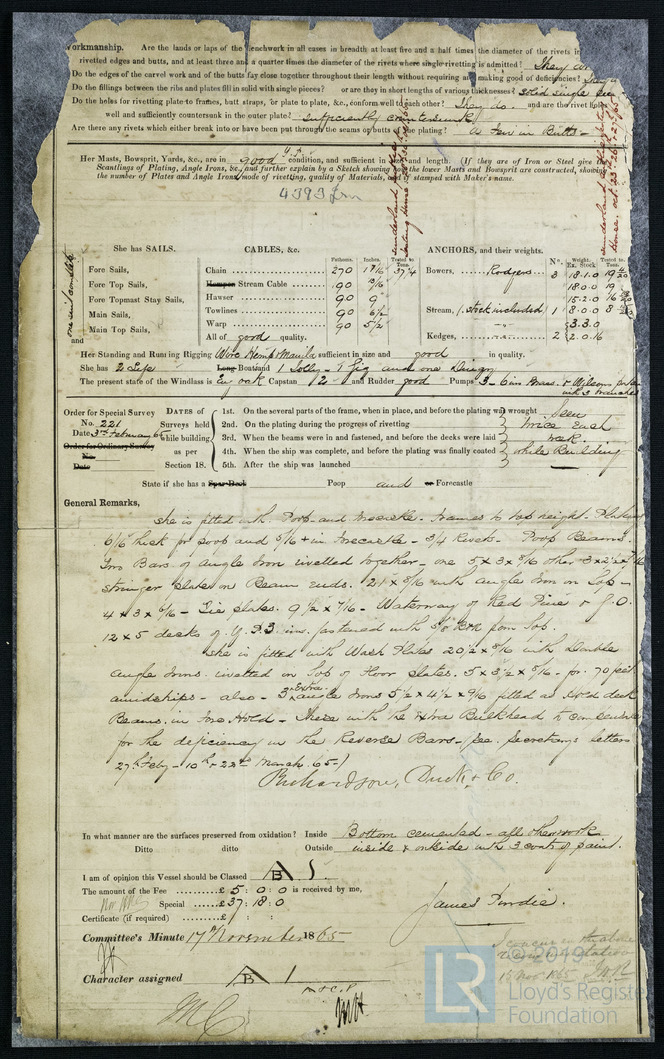 Workmanship. Are the lands or laps of the clenchwork in all cases in breadth at least five and a half times the diameter of the rivets in
rivetted edges and butts, and at least three and a quarter times the diameter of the rivets where single rivetting is admitted? They are
Do the edges of the carvel work and of the butts fay close together throughout their length without requiring any making good of deficiencies? They
Do the fillings between the ribs and plates fill in solid with single pieces? or are they in short lengths of various thicknesses? solid single
Do the holes for rivetting plate to frames, butt straps, or plate to plate, &c., conform well to each other? They do. and are the rivet
well and sufficiently countersunk in the outer plate? sufficiently countersunk
Are there any rivets which either break into or have been put through the seams or butts of the plating? a few in Butts -
Her Masts, Bowsprit, Yards, &c., are in good condition, and sufficient in and length. (If they are of Iron or Steel give
Scantlings of Plating, Angle Irons, &c., and further explain by a Sketch showing how the lower Masts and Bowsprit are constructed, showing
the number of Plates and Angle Irons, mode of rivetting, quality of Materials, stamped with Maker's name.
4393 Irn
She has SAILS. CABLES, &c. ANCHORS, and their weights.
Fathoms. Inches. Tested to Tons. No. Weight. Ex. Stock Tested to Tons.
Fore Sails, Chain 270 Bowers, Rodgers 3 18.1.0 19
Fore Top Sails, Hempen Stream Cable 90 18.0.0 19
Fore Topmast Stay Sails, Hawser 90 9 15.2.0 16
Main Sails, Towlines 90 6 1/2 Stream, (stock included) 1 8.0.0 8
Main Top Sails, Warp 90 5 1/2 3.3.0
and All of good quality. Kedges, 2 2.0.16
Her Standing and Running Rigging Wire Hemp & Manila sufficient in size and good in quality.
She has 2 Life Long Boat and 1 Jolly - 1 Gig and one Dingy
The present state of the Windlass is oak Capstan 2 and Rudder good Pumps 3 - 6 ins Brass.
Order for Special Survey
No. 221
Date 3rd February 65
Order for Ordinary Survey
No.
Date
DATES of Surveys held while building as per Section 18.
1st. On the several parts of the frame, when in place, and before the plating was wrought
2nd. On the plating during the progress of rivetting
3rd. When the beams were in and fastened, and before the decks were laid
4th. When the ship was complete, and before the plating was finally coated
5th. After the ship was launched
Seen
twice each
week
while Building
State if she has a Spar Deck Poop and or Forecastle
General Remarks,
She is fitted with Poop and Forecastle. Frames to top height. Plating
6/16 thick for poop and 5/16 in Forecastle - 3/4 Rivets. Poop Beams.
Two Bars of Angle Iron rivetted together - one 5 x 3 x 5/16 other
stringer plates on Beam ends. 21 x 5/16 with Angle Iron on top -
4 x 3 x 6/16 - Tie plates. 9 1/2 x 7/16 - Waterway of Red Pine & G.O.
12 x 5 decks of Y.P. 3 ins. fastened with 5/8 from top.
She is fitted with Wash Plates 20 1/2 x 5/16 with Double
Angle Irons. rivetted on top of Floor plates. 5 x 3 1/2 x 5/16 - for 70 feet
amidships - also - 3 Extra Angle Irons 5 1/2 x 4 1/2 x 9/16 fitted as Hold deck
Beams. in Fore Hold - These with the Extra Bulkhead to compensate
for the deficiency in the Reverse Bars - (See Secretarys letters
27th Feby - 10th & 22nd March. 65 -)
Richardson, Duck & Co.
In what manner are the surfaces preserved from oxidation? Inside Bottom cemented - all other work
Ditto ditto Outside inside & outside with 3 coats of paint.
I am of opinion this Vessel should be Classed B 1
The amount of the Fee £ 5 : 0 : 0 is received by me,
Special £ 37 : 18 : 0
James Purdie.
Certificate (if required) £
Committee's Minute 17th November 1865
I concur in the above
15 Nov 1865
Character assigned B 1
M & C.P.
© 2019
LR
Lloyd's Register
Foundation